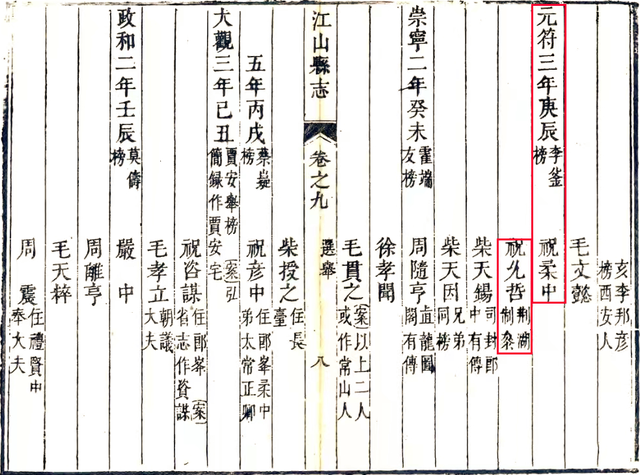 亥李邦彥榜西安人
毛文懿
元符三年庚辰 李釜榜 祝柔中
祝允哲 荊湖制參
柴天錫 司封郎中有傳
柴天因 兄弟同榜
崇寧二年癸未 霍端友榜 周隨亨 直龍圖閣有傳
徐孝聞
毛貫之 (案)以上二人或作常山人
江山縣志 卷之九 選舉 八
柴授之 任長臺
五年丙戌 蔡嶷榜 祝彥中 任郎峯柔中弟太常正卿
大觀三年己丑 賈安舉榜(案)弘簡録作賈安宅 祝咨謀 任郎峯(案)省志作資謀
毛孝立 朝議大夫
政和二年壬辰 莫儔榜 嚴中
周離亨
毛天梓
周震 任禮賢中奉大夫